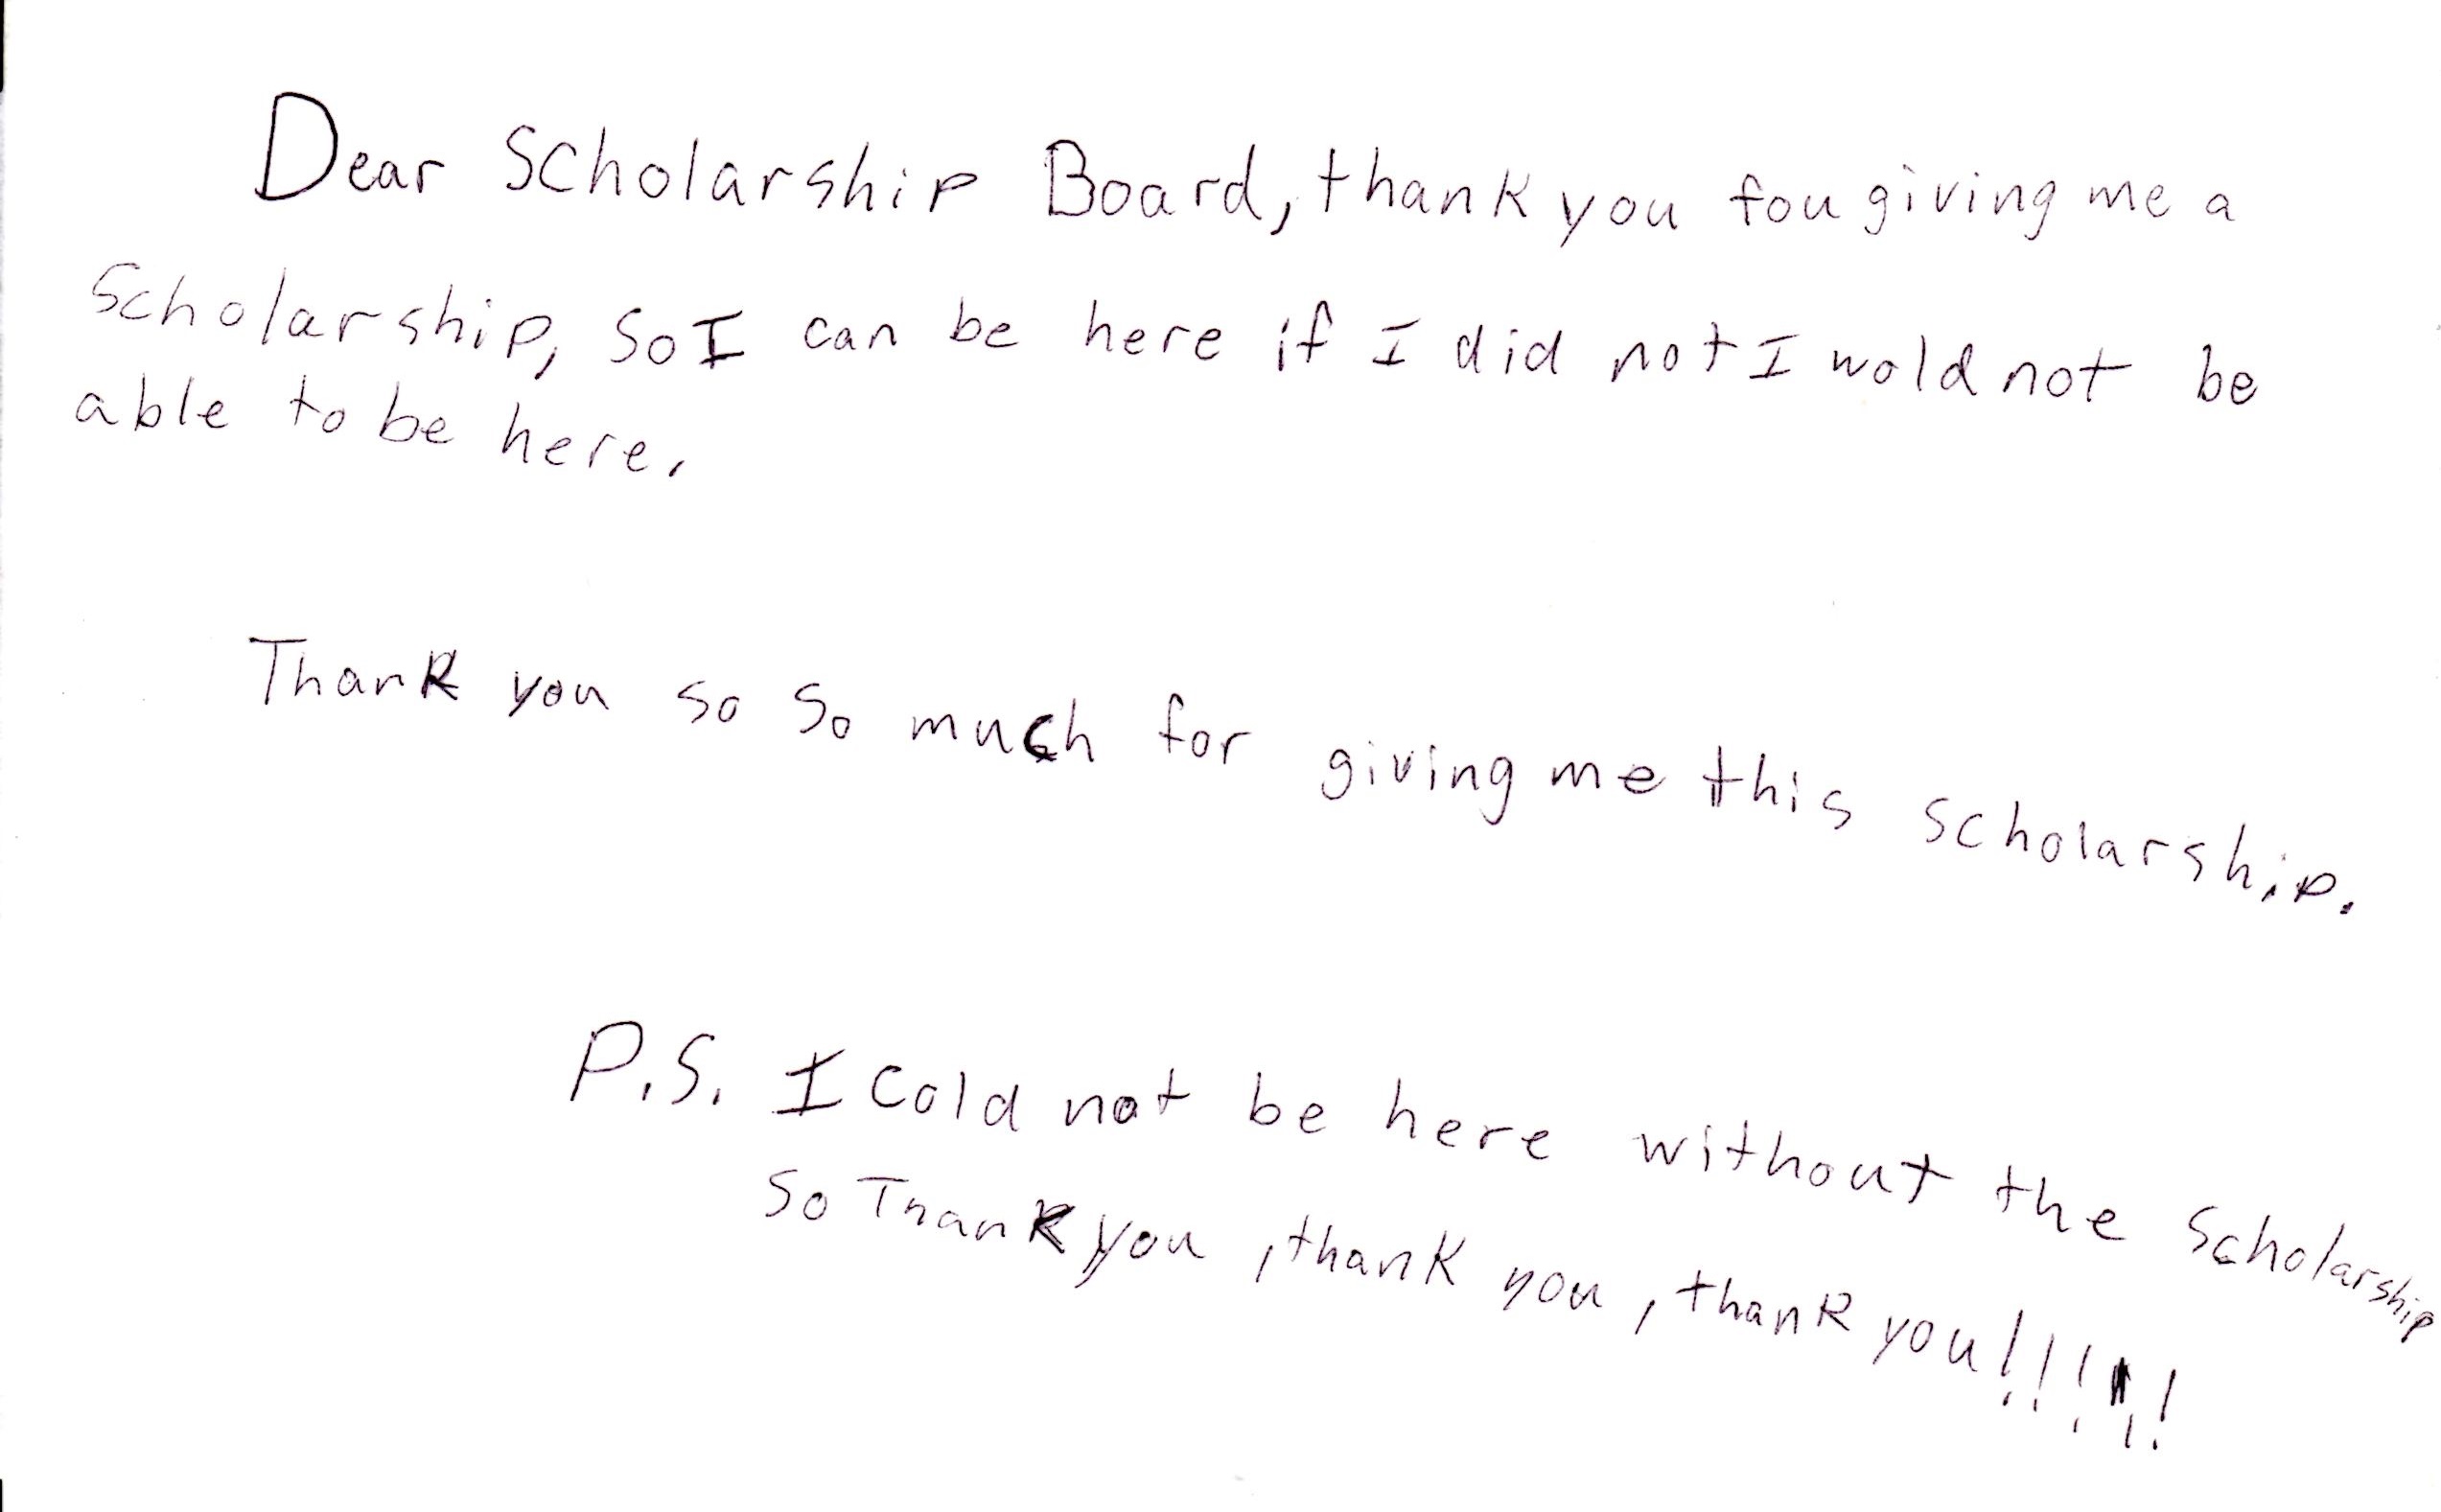 Dear Scholarship Board, thank you fou giving me a
Scholarship, So I can be here if I did not I wold not be
able to be here.
Thank you so so much for giving me this scholarship.
P.S. I cold not be here without the scholarship
so Thank you, thank you, thank you!!!!!